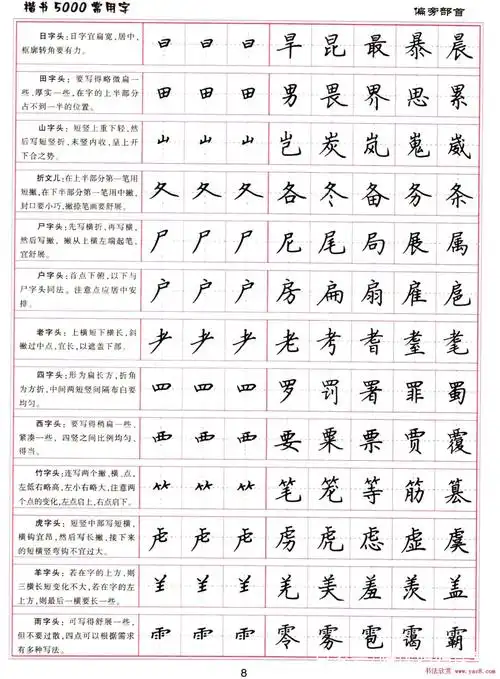 楷书5000常用字
偏旁部首
日字头：日字宜扁宽，居中，
框廓转角要有力。
日 日 日 旱 昆 最 暴 晨
田字头：要写得略微扁一
些，厚实一些，在字的上半部分
占不到一半的位置。
田 田 田 男 畏 界 思 累
山字头：短竖上重下轻，然
后写短竖折，末竖内收，呈上开
下合之势。
山 山 山 岂 炭 岚 嵬 崴
折文儿：在上半部分第一笔用
短撇，在下半部分第一笔用中撇，
封口要小巧，撇捺笔画要舒展。
夂 夂 夂 各 冬 备 务 条
尸字头：先写横折，再写横，
然后写撇，撇从上横左端起笔，
宜舒展。
尸 尸 尸 尼 尾 局 展 属
户字头：首点下俯，以下与
尸字头同法。注意点应居中安
排。
户 户 户 房 扁 扇 雇 扈
老字头：上横短下横长，斜
撇过中点，宜长，以遮盖下部。
耂 耂 耂 老 考 耆 耋 耄
四字头：形为扁长方，折角
为方折，中间两短竖间隔布白要
均匀。
罒 罒 罒 罗 罚 署 罪 蜀
西字头：要写得稍扁一些，
紧凑一些，四竖之间比例均匀、
得当。
覀 覀 覀 要 粟 票 贾 覆
竹字头：连写两个撇、横、点，
左低右略高，左小右略大，注意两
个点的变化，左点启上，右点启下。
⺮ ⺮ ⺮ 笔 笼 等 筋 篡
虎字头：短竖中部写短横，
横钩宜昂，然后写长撇，接下来
的短横竖弯钩不宜过大。
虍 虍 虍 虏 虎 虑 虚 虞
羊字头：若在字的上方，则
三横长短变化不大，若在字的左
上方，则最后一横要长一些。
⺷ ⺷ ⺷ 羌 美 羞 羡 盖
雨字头：可写得舒展一些，
但不要过散，四点可以根据需求
有多种写法。
⻗ ⻗ ⻗ 零 雾 雹 霭 霸
8
书法欣赏 www.yac8.com